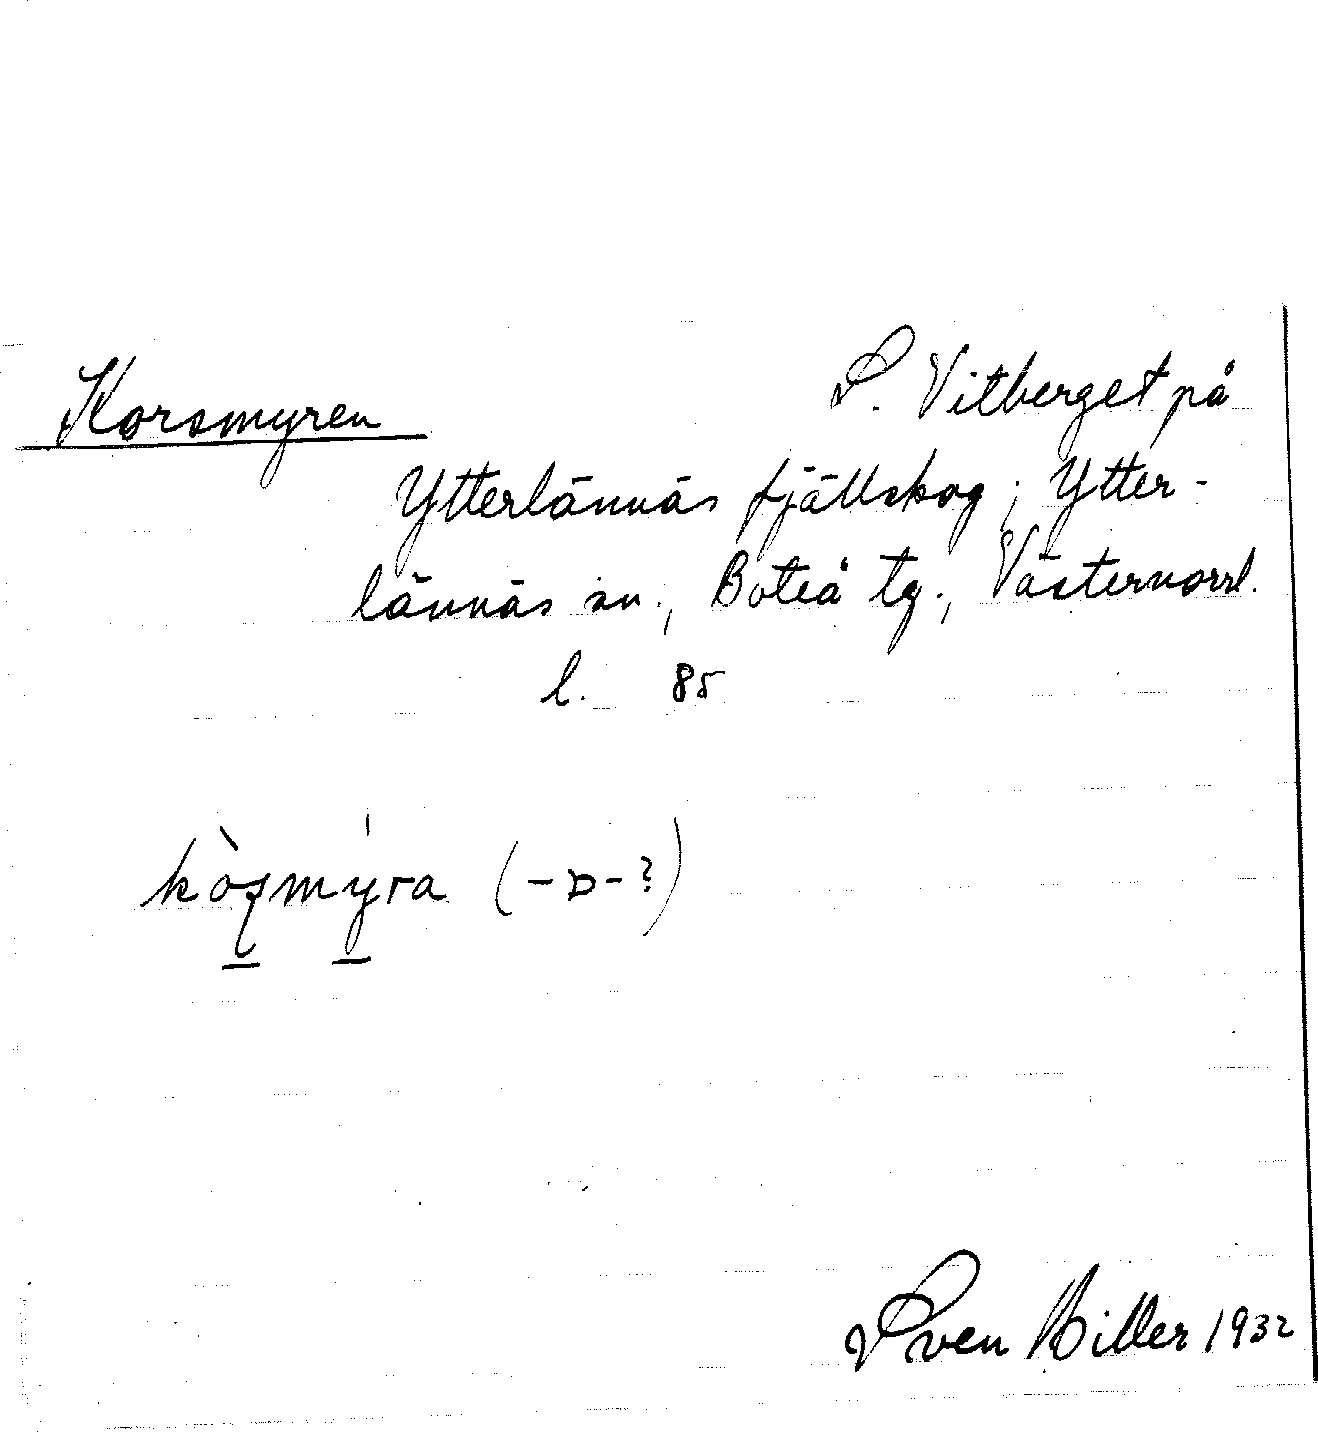 Korsmyren
S. Vitberget på
Ytterlännäs fjällskog; Ytter-
lännäs sn., Boteå tg., Västernorrl.
l. 85
(-ɒ-?)
Sven Biller 1932